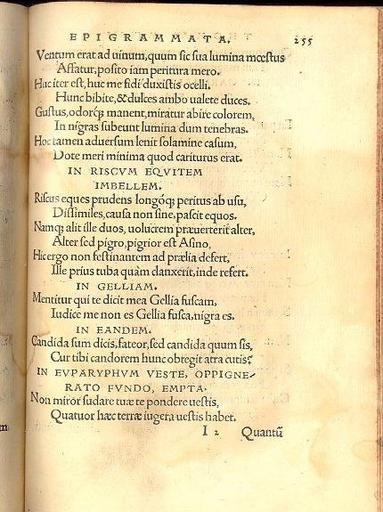 EPIGRAMMATA. 255
Ventum erat ad uinum, quum sic sua lumina mœstus
Affatur, posito iam peritura mero.
Huc iter est, huc me fidi duxistis ocelli.
Hunc bibite, & dulces ambo ualete duces.
Gustus, odorq; manent, miratur abire colorem,
In nigras subeunt lumina dum tenebras.
Hoc tamen aduersum lenit solamine casum,
Dote meri minima quod cariturus erat.
IN RISCVM EQVITEM
IMBELLEM.
Riscus eques prudens longoq; peritus ab usu,
Dissimiles, causa non sine, pascit equos.
Namq; alit ille duos, uolucrem præuerterit alter,
Alter sed pigro, pigrior est Asino,
Hic ergo non festinantem ad prælia defert,
Ille prius tuba quàm danxerit, inde refert.
IN GELLIAM.
Mentitur qui te dicit mea Gellia fuscam,
Iudice me non es Gellia fusca, nigra es.
IN EANDEM.
Candida sum dicis, fateor, sed candida quum sis,
Cur tibi candorem hunc obtegit atra cutis?
IN EVPARYPHVM VESTE, OPPIGNE-
RATO FVNDO, EMPTA.
Non miror sudare tuæ te pondere uestis,
Quatuor hæc terræ iugera uestis habet.
I 2 Quantũ